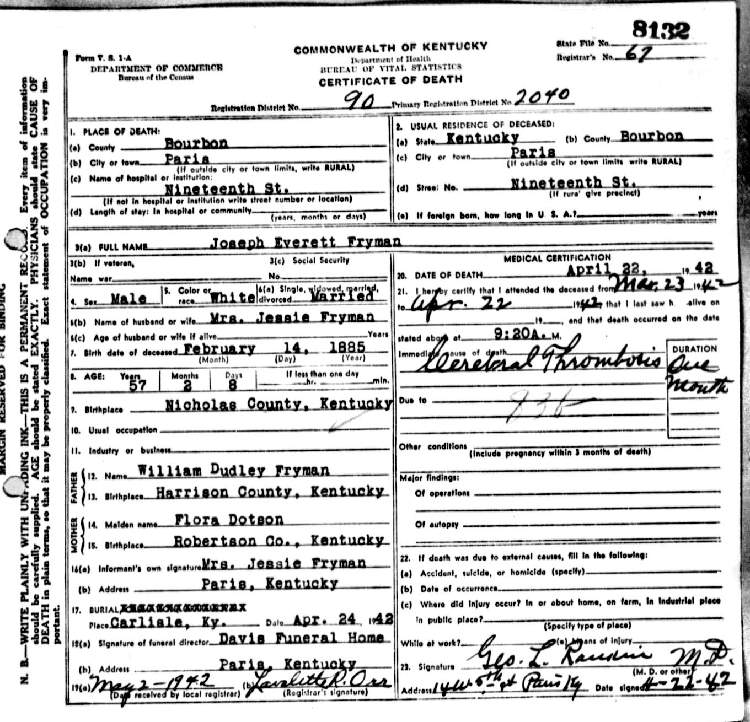 8132
COMMONWEALTH OF KENTUCKY
Form V. S. 1-A
State File No.
DEPARTMENT OF COMMERCE
Department of Health
Registrar's No. 67
Bureau of the Census
BUREAU OF VITAL STATISTICS
CERTIFICATE OF DEATH
Registration District No. 90 Primary Registration District No. 2040
MARGIN RESERVED FOR BINDING
N. B.—WRITE PLAINLY WITH UNFADING INK—THIS IS A PERMANENT RECORD. Every item of information
should be carefully supplied. AGE should be stated EXACTLY. PHYSICIANS should state CAUSE OF
DEATH in plain terms, so that it may be properly classified. Exact statement of OCCUPATION is very im-
portant.
1. PLACE OF DEATH:
(a) County Bourbon
(b) City or town Paris
(If outside city or town limits, write RURAL)
(c) Name of hospital or institution:
Nineteenth St.
(If not in hospital or institution write street number or location)
(d) Length of stay: In hospital or community
(years, months or days)
2. USUAL RESIDENCE OF DECEASED:
(a) State Kentucky (b) County Bourbon
(c) City or town Paris
(If outside city or town limits, write RURAL)
(d) Street No. Nineteenth St.
(If rural give precinct)
(e) If foreign born, how long in U. S. A.? years
3(a) FULL NAME Joseph Everett Fryman
3(b) If veteran, 3(c) Social Security
Name war No.
4. Sex Male 5. Color or race White 6(a) Single, widowed, married, divorced Married
6(b) Name of husband or wife Mrs. Jessie Fryman
6(c) Age of husband or wife if alive Years
7. Birth date of deceased February 14, 1885
(Month) (Day) (Year)
8. AGE: Years Months Days If less than one day
57 2 8 hr. min.
9. Birthplace Nicholas County, Kentucky
10. Usual occupation
11. Industry or business
FATHER
12. Name William Dudley Fryman
13. Birthplace Harrison County, Kentucky
MOTHER
14. Maiden name Flora Dotson
15. Birthplace Robertson Co., Kentucky
16(a) Informant's own signature Mrs. Jessie Fryman
(b) Address Paris, Kentucky
17. BURIAL
Place Carlisle, Ky. Date Apr. 24 1942
18(a) Signature of funeral director Davis Funeral Home
(b) Address Paris, Kentucky
19(a) May 2-1942 (b) Orr
(Date received by local registrar) (Registrar's signature)
MEDICAL CERTIFICATION
20. DATE OF DEATH April 22, 1942
21. I hereby certify that I attended the deceased from Mar. 23 1942
to Apr. 22 1942, that I last saw h alive on
19 and that death occurred on the date
stated above at 9:20A. M.
Immediate cause of death DURATION
Cerebral Thrombosis One
Month
Due to
Other conditions
(Include pregnancy within 3 months of death)
Major findings:
Of operations
Of autopsy
22. If death was due to external causes, fill in the following:
(a) Accident, suicide, or homicide (specify)
(b) Date of occurrence
(c) Where did injury occur? In or about home, on farm, in industrial place
in public place?
(Specify type of place)
While at work? (e) Means of injury
23. Signature Geo. L. M.D.
(M. D. or other)
Address Paris Ky Date signed 4-22-42